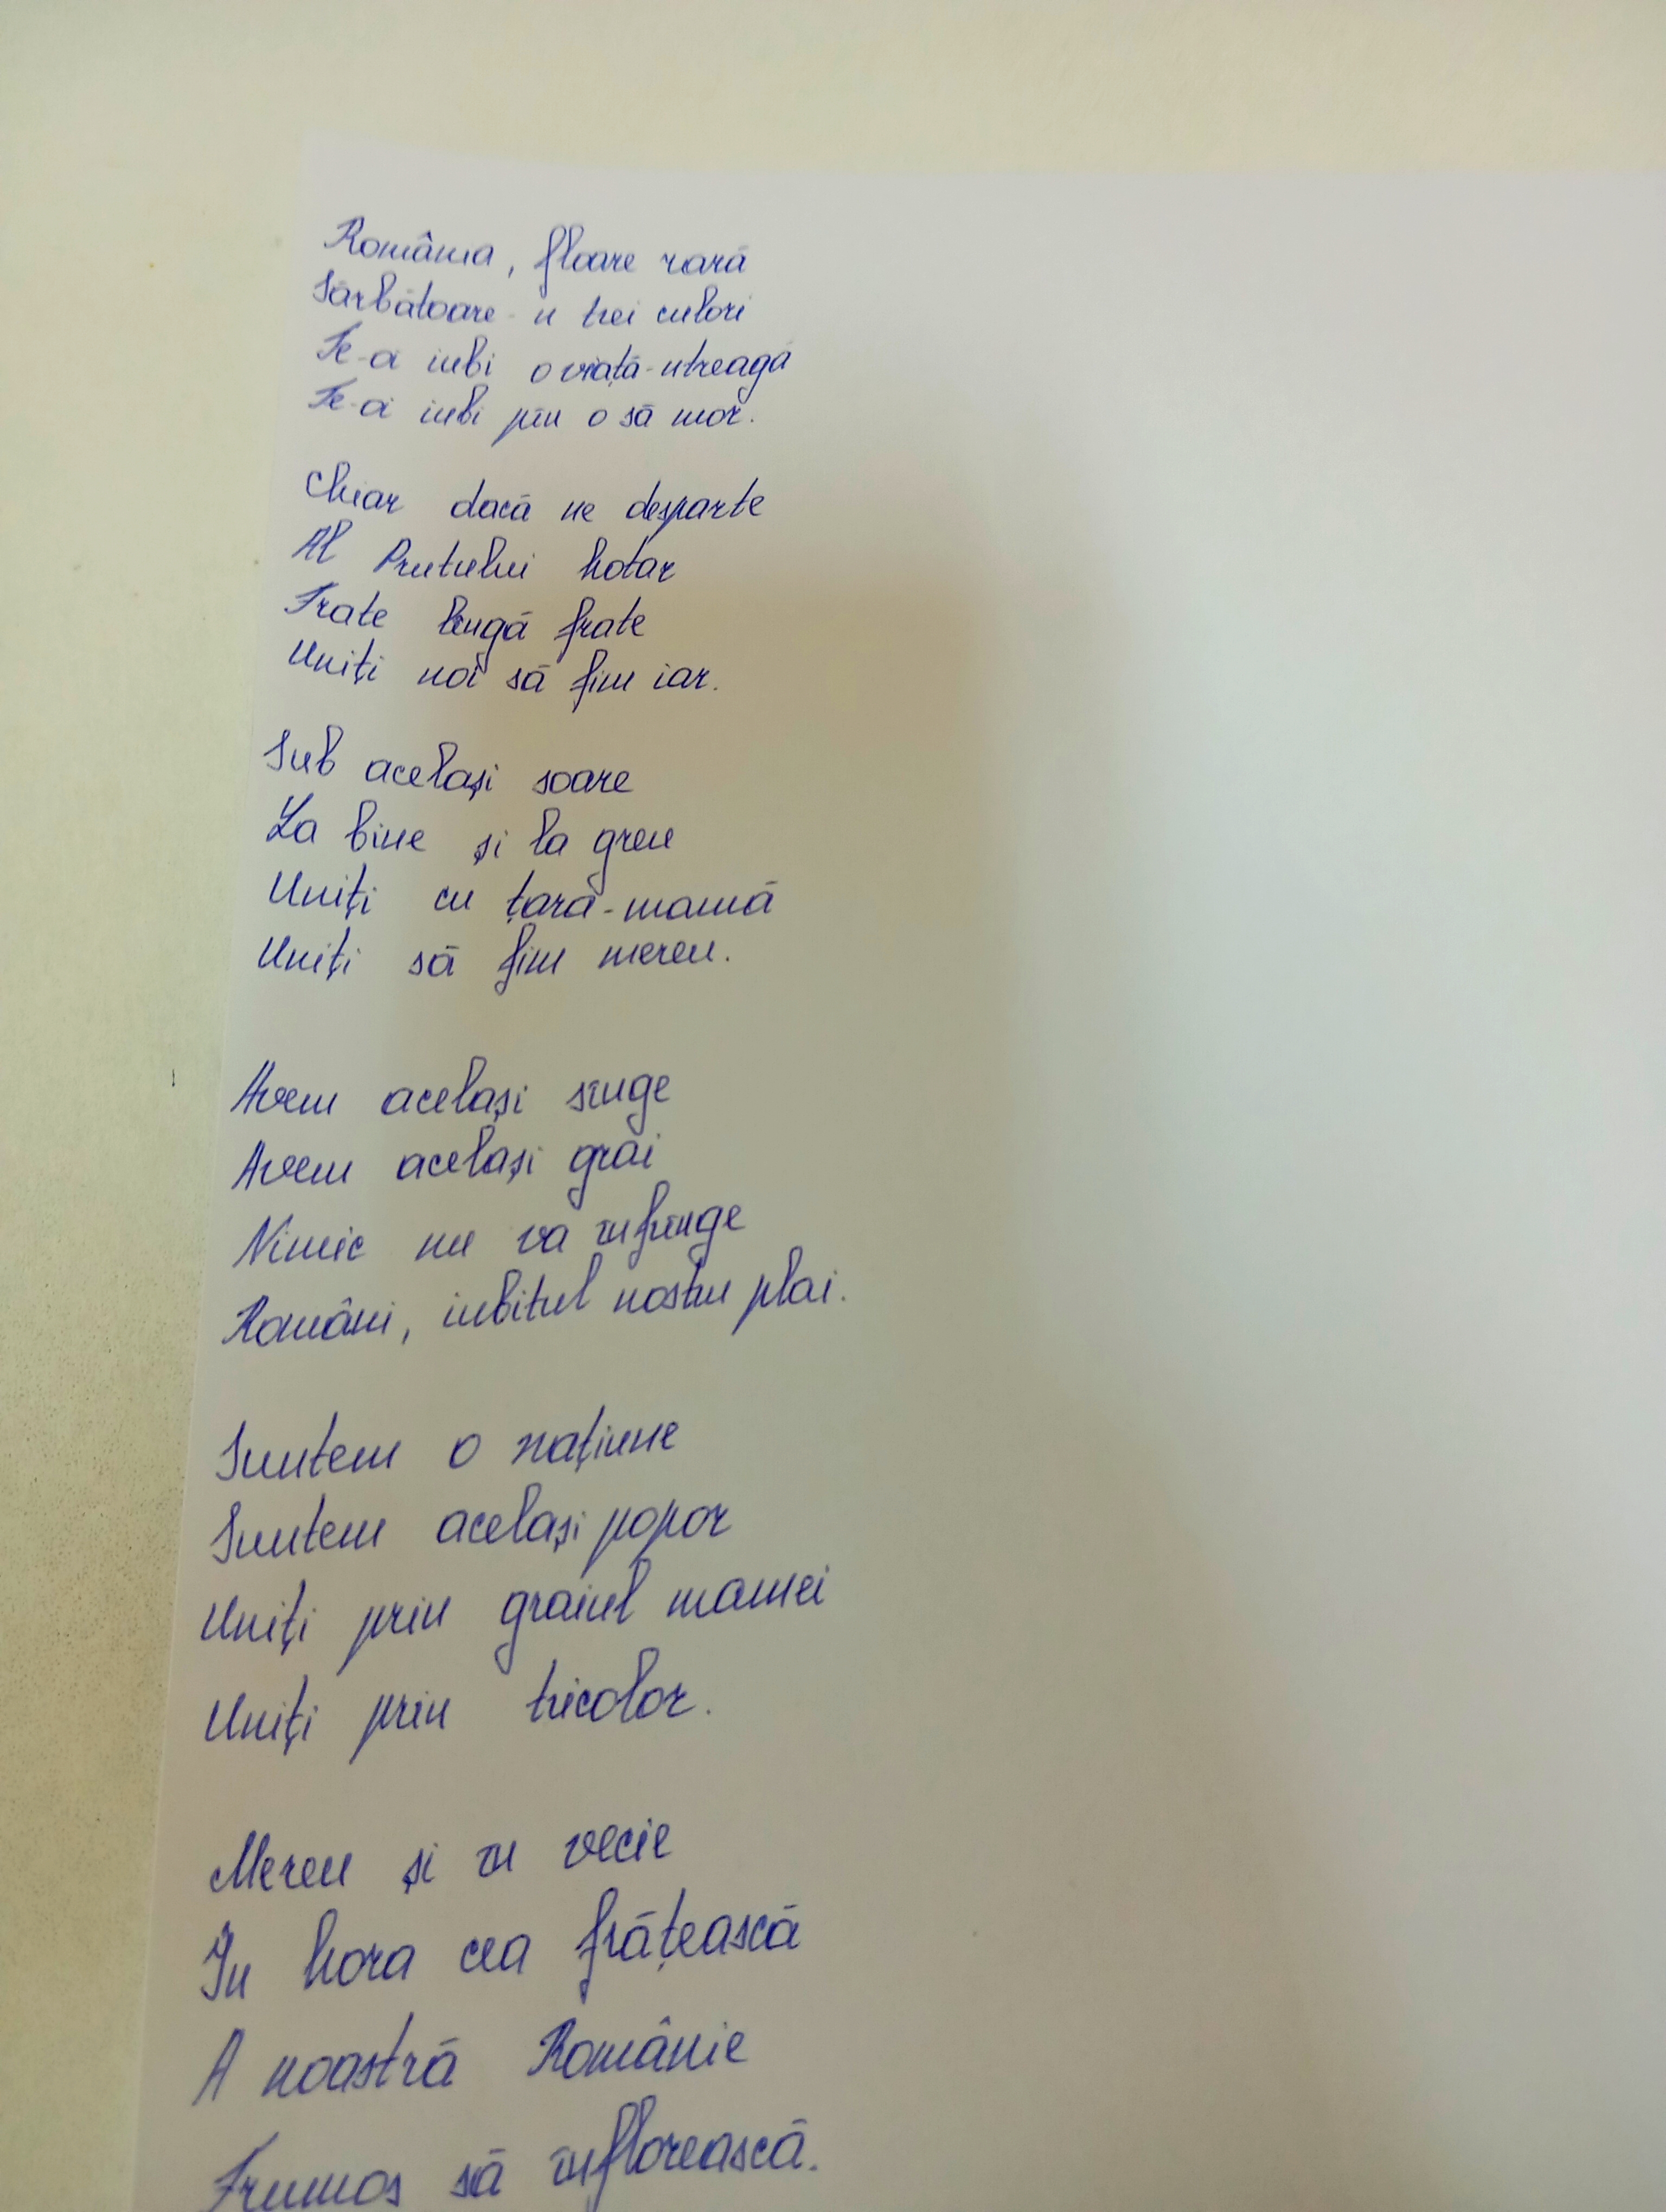 România, floare rară
Sărbătoare-n trei culori
Te-ai iubi o viață-ntreagă
Te-ai iubi pîn o să mor.
Chiar dacă ne desparte
Al Prutului hotar
Frate lîngă frate
Uniți noi să fim iar.
Sub același soare
La bine și la greu
Uniți cu țara-mamă
Uniți să fim mereu.
Avem același sînge
Avem același grai
Nimic nu va înfrînge
Români, iubitul nostru plai.
Suntem o națiune
Suntem același popor
Uniți prin graiul mamei
Uniți prin tricolor.
Mereu și în vecie
În hora cea frățească
A noastră Românie
Frumos să înflorească.